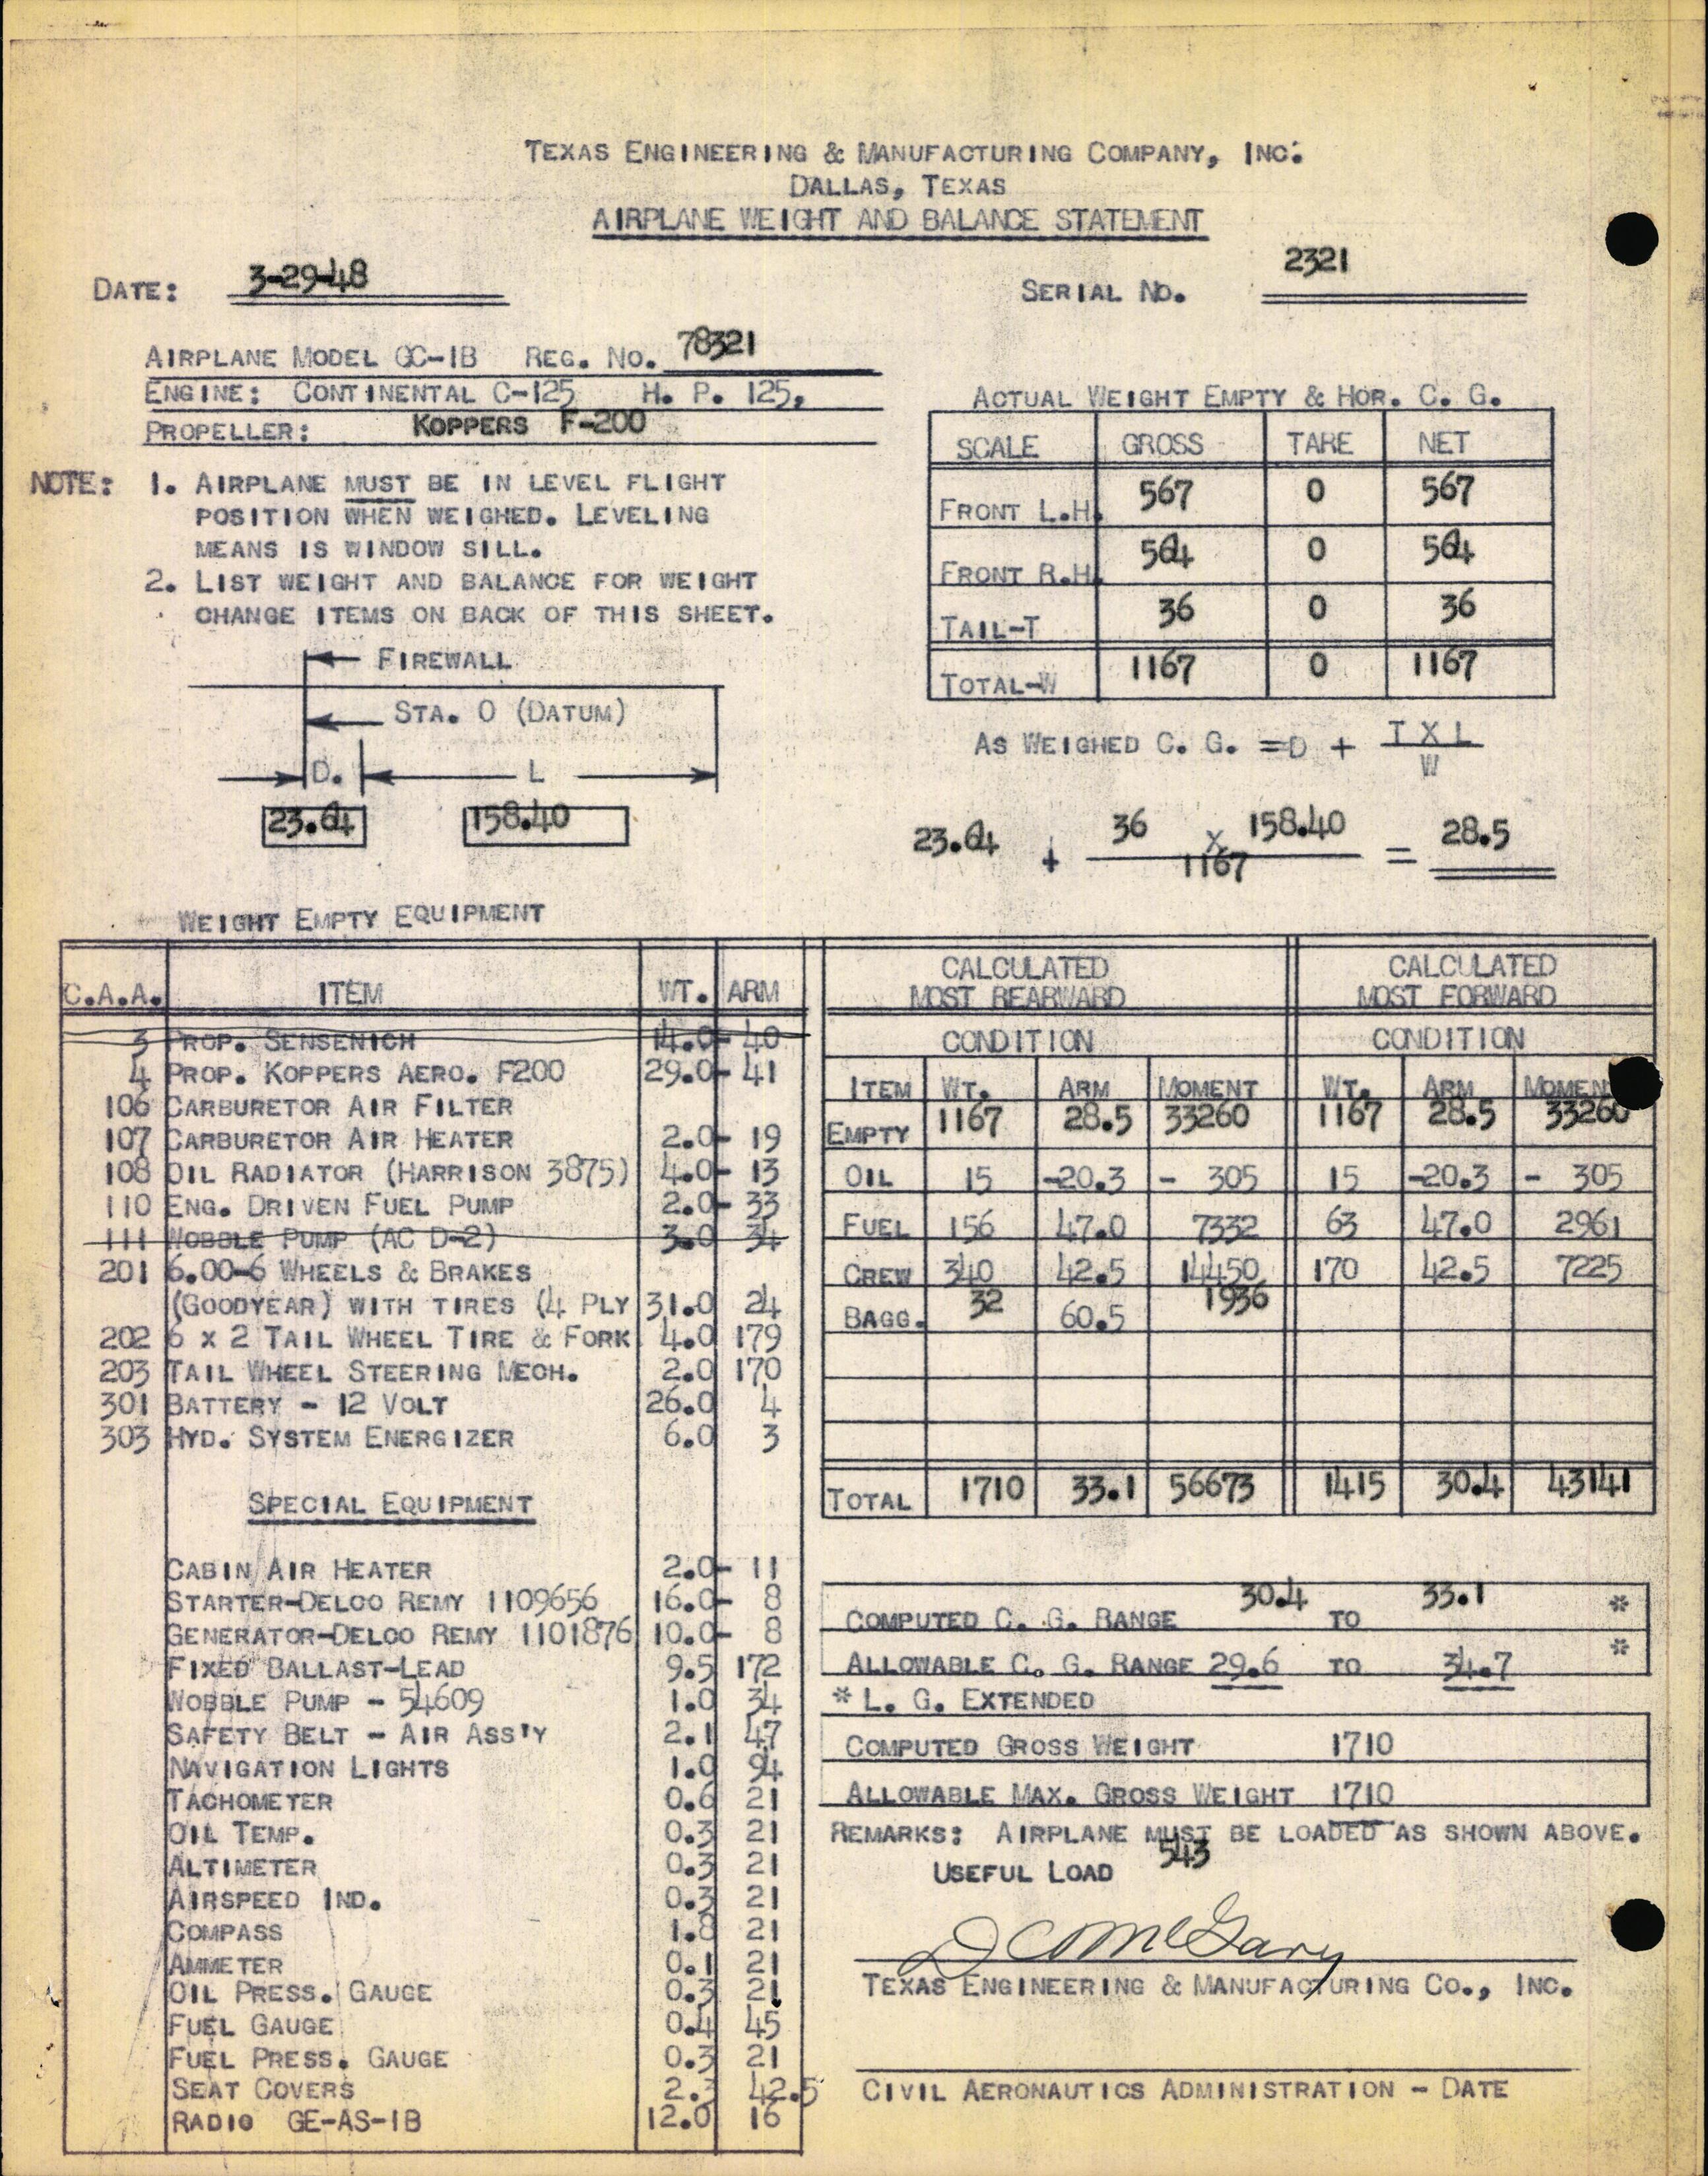 TEXAS ENGINEERING & MANUFACTURING COMPANY, INC.
DALLAS, TEXAS
AIRPLANE WEIGHT AND BALANCE STATEMENT
DATE: 3-29-48
SERIAL NO. 2321
AIRPLANE MODEL GC-1B REG. NO. 78321
ENGINE: CONTINENTAL C-125 H. P. 125,
PROPELLER: KOPPERS F-200
NOTE: 1. AIRPLANE MUST BE IN LEVEL FLIGHT
POSITION WHEN WEIGHED. LEVELING
MEANS IS WINDOW SILL.
2. LIST WEIGHT AND BALANCE FOR WEIGHT
CHANGE ITEMS ON BACK OF THIS SHEET.
FIREWALL
STA. 0 (DATUM)
D. L
23.64 158.40
ACTUAL WEIGHT EMPTY & HOR. C. G.
SCALE GROSS TARE NET
FRONT L.H. 567 0 567
FRONT R.H. 564 0 564
TAIL-T 36 0 36
TOTAL-W 1167 0 1167
AS WEIGHED C. G. =D + T X L
W
23.64 + 36 X 158.40 = 28.5
1167
WEIGHT EMPTY EQUIPMENT
C.A.A. ITEM WT. ARM
3 PROP. SENSENICH 14.0- 40
4 PROP. KOPPERS AERO. F200 29.0- 41
106 CARBURETOR AIR FILTER
107 CARBURETOR AIR HEATER 2.0- 19
108 OIL RADIATOR (HARRISON 3875) 4.0- 13
110 ENG. DRIVEN FUEL PUMP 2.0- 33
111 WOBBLE PUMP (AC D-2) 3.0 34
201 6.00-6 WHEELS & BRAKES
(GOODYEAR) WITH TIRES (4 PLY 31.0 24
202 6 X 2 TAIL WHEEL TIRE & FORK 4.0 179
203 TAIL WHEEL STEERING MECH. 2.0 170
301 BATTERY - 12 VOLT 26.0 4
303 HYD. SYSTEM ENERGIZER 6.0 3
SPECIAL EQUIPMENT
CABIN AIR HEATER 2.0- 11
STARTER-DELCO REMY 1109656 16.0- 8
GENERATOR-DELCO REMY 1101876 10.0- 8
FIXED BALLAST-LEAD 9.5 172
WOBBLE PUMP - 54609 1.0 34
SAFETY BELT - AIR ASS'Y 2.1 47
NAVIGATION LIGHTS 1.0 94
TACHOMETER 0.6 21
OIL TEMP. 0.3 21
ALTIMETER 0.3 21
AIRSPEED IND. 0.3 21
COMPASS 1.8 21
AMMETER 0.1 21
OIL PRESS. GAUGE 0.3 21
FUEL GAUGE 0.4 45
FUEL PRESS. GAUGE 0.3 21
SEAT COVERS 2.3 42.5
RADIO GE-AS-1B 12.0 16
CALCULATED CALCULATED
MOST REARWARD MOST FORWARD
CONDITION CONDITION
ITEM WT. ARM MOMENT WT. ARM MOMEN
EMPTY 1167 28.5 33260 1167 28.5 33260
OIL 15 -20.3 - 305 15 -20.3 - 305
FUEL 156 47.0 7332 63 47.0 2961
CREW 340 42.5 14450 170 42.5 7225
BAGG. 32 60.5 1936
TOTAL 1710 33.1 56673 1415 30.4 43141
COMPUTED C. G. RANGE 30.4 TO 33.1 *
ALLOWABLE C. G. RANGE 29.6 TO 34.7 *
* L. G. EXTENDED
COMPUTED GROSS WEIGHT 1710
ALLOWABLE MAX. GROSS WEIGHT 1710
REMARKS: AIRPLANE MUST BE LOADED AS SHOWN ABOVE.
USEFUL LOAD 543
D C McGary
TEXAS ENGINEERING & MANUFACTURING CO., INC.
CIVIL AERONAUTICS ADMINISTRATION - DATE